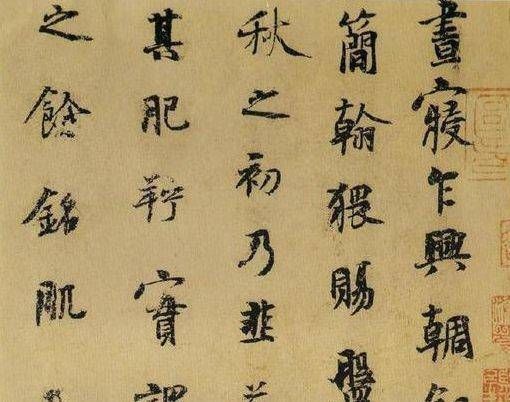 晝寢乍興輖
簡翰猥賜盤
秋之初乃韭
其肥羜實謂
之餘銘肌